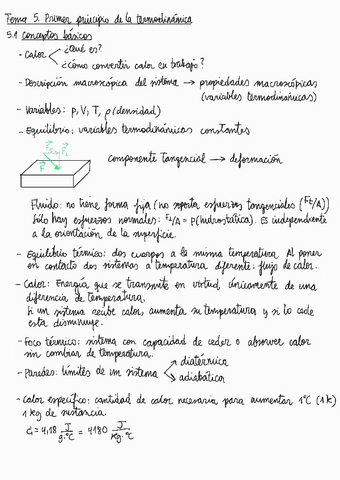 Tema 5. Primer principio de la termodinámica
5.1 Conceptos básicos
- Calor
¿Qué es?
¿Cómo convertir calor en trabajo?
- Descripción macroscópica del sistema → propiedades macroscópicas
(variables termodinámicas)
- Variables: p, V, T, ρ (densidad)
- Equilibrio: variables termodinámicas constantes
componente tangencial → deformación
Fluido: no tiene forma fija (no soporta esfuerzos tangenciales (Ft/A)
Sólo hay esfuerzos normales: F⊥/A = p (hidrostática). Es independiente
a la orientación de la superficie.
- Equilibrio térmico: dos cuerpos a la misma temperatura. Al poner
en contacto dos sistemas a temperatura diferente: flujo de calor.
- Calor: Energía que se transmite en virtud únicamente de una
diferencia de temperatura.
Si un sistema recibe calor, aumenta su temperatura y si lo cede
esta disminuye.
- Foco térmico: sistema con capacidad de ceder o absorver calor
sin cambiar de temperatura.
- Paredes: límites de un sistema
diatérmica
adiabática
- Calor específico: cantidad de calor necesaria para aumentar 1°C (1k)
1 kg de sustancia.
= 4,18 J/g·°C = 4180 J/kg·°C